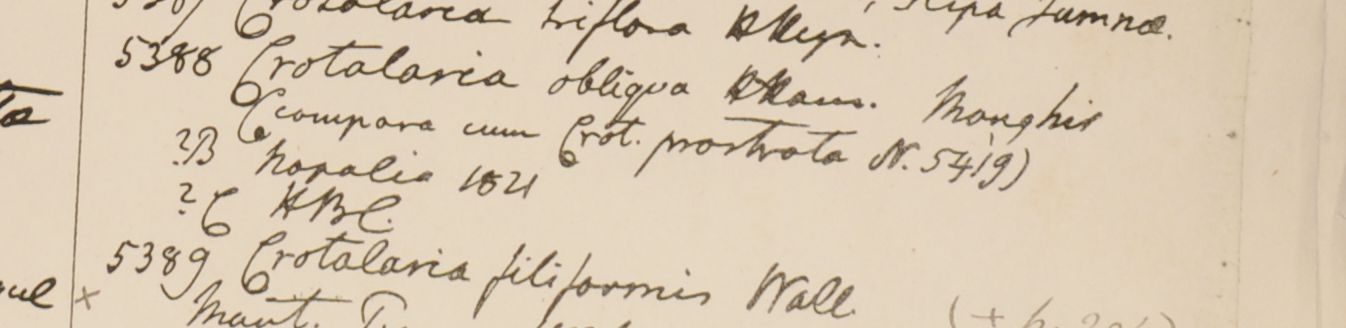 Crotalaria triflora HHeyn. Ripa Jumnæ.
5388 Crotalaria obliqua HHam. Monghir
(compara cum Crot. prostrata N. 5419)
?B Napalia 1821
?C HBC.
5389 Crotalaria filiformis Wall.
Mont.